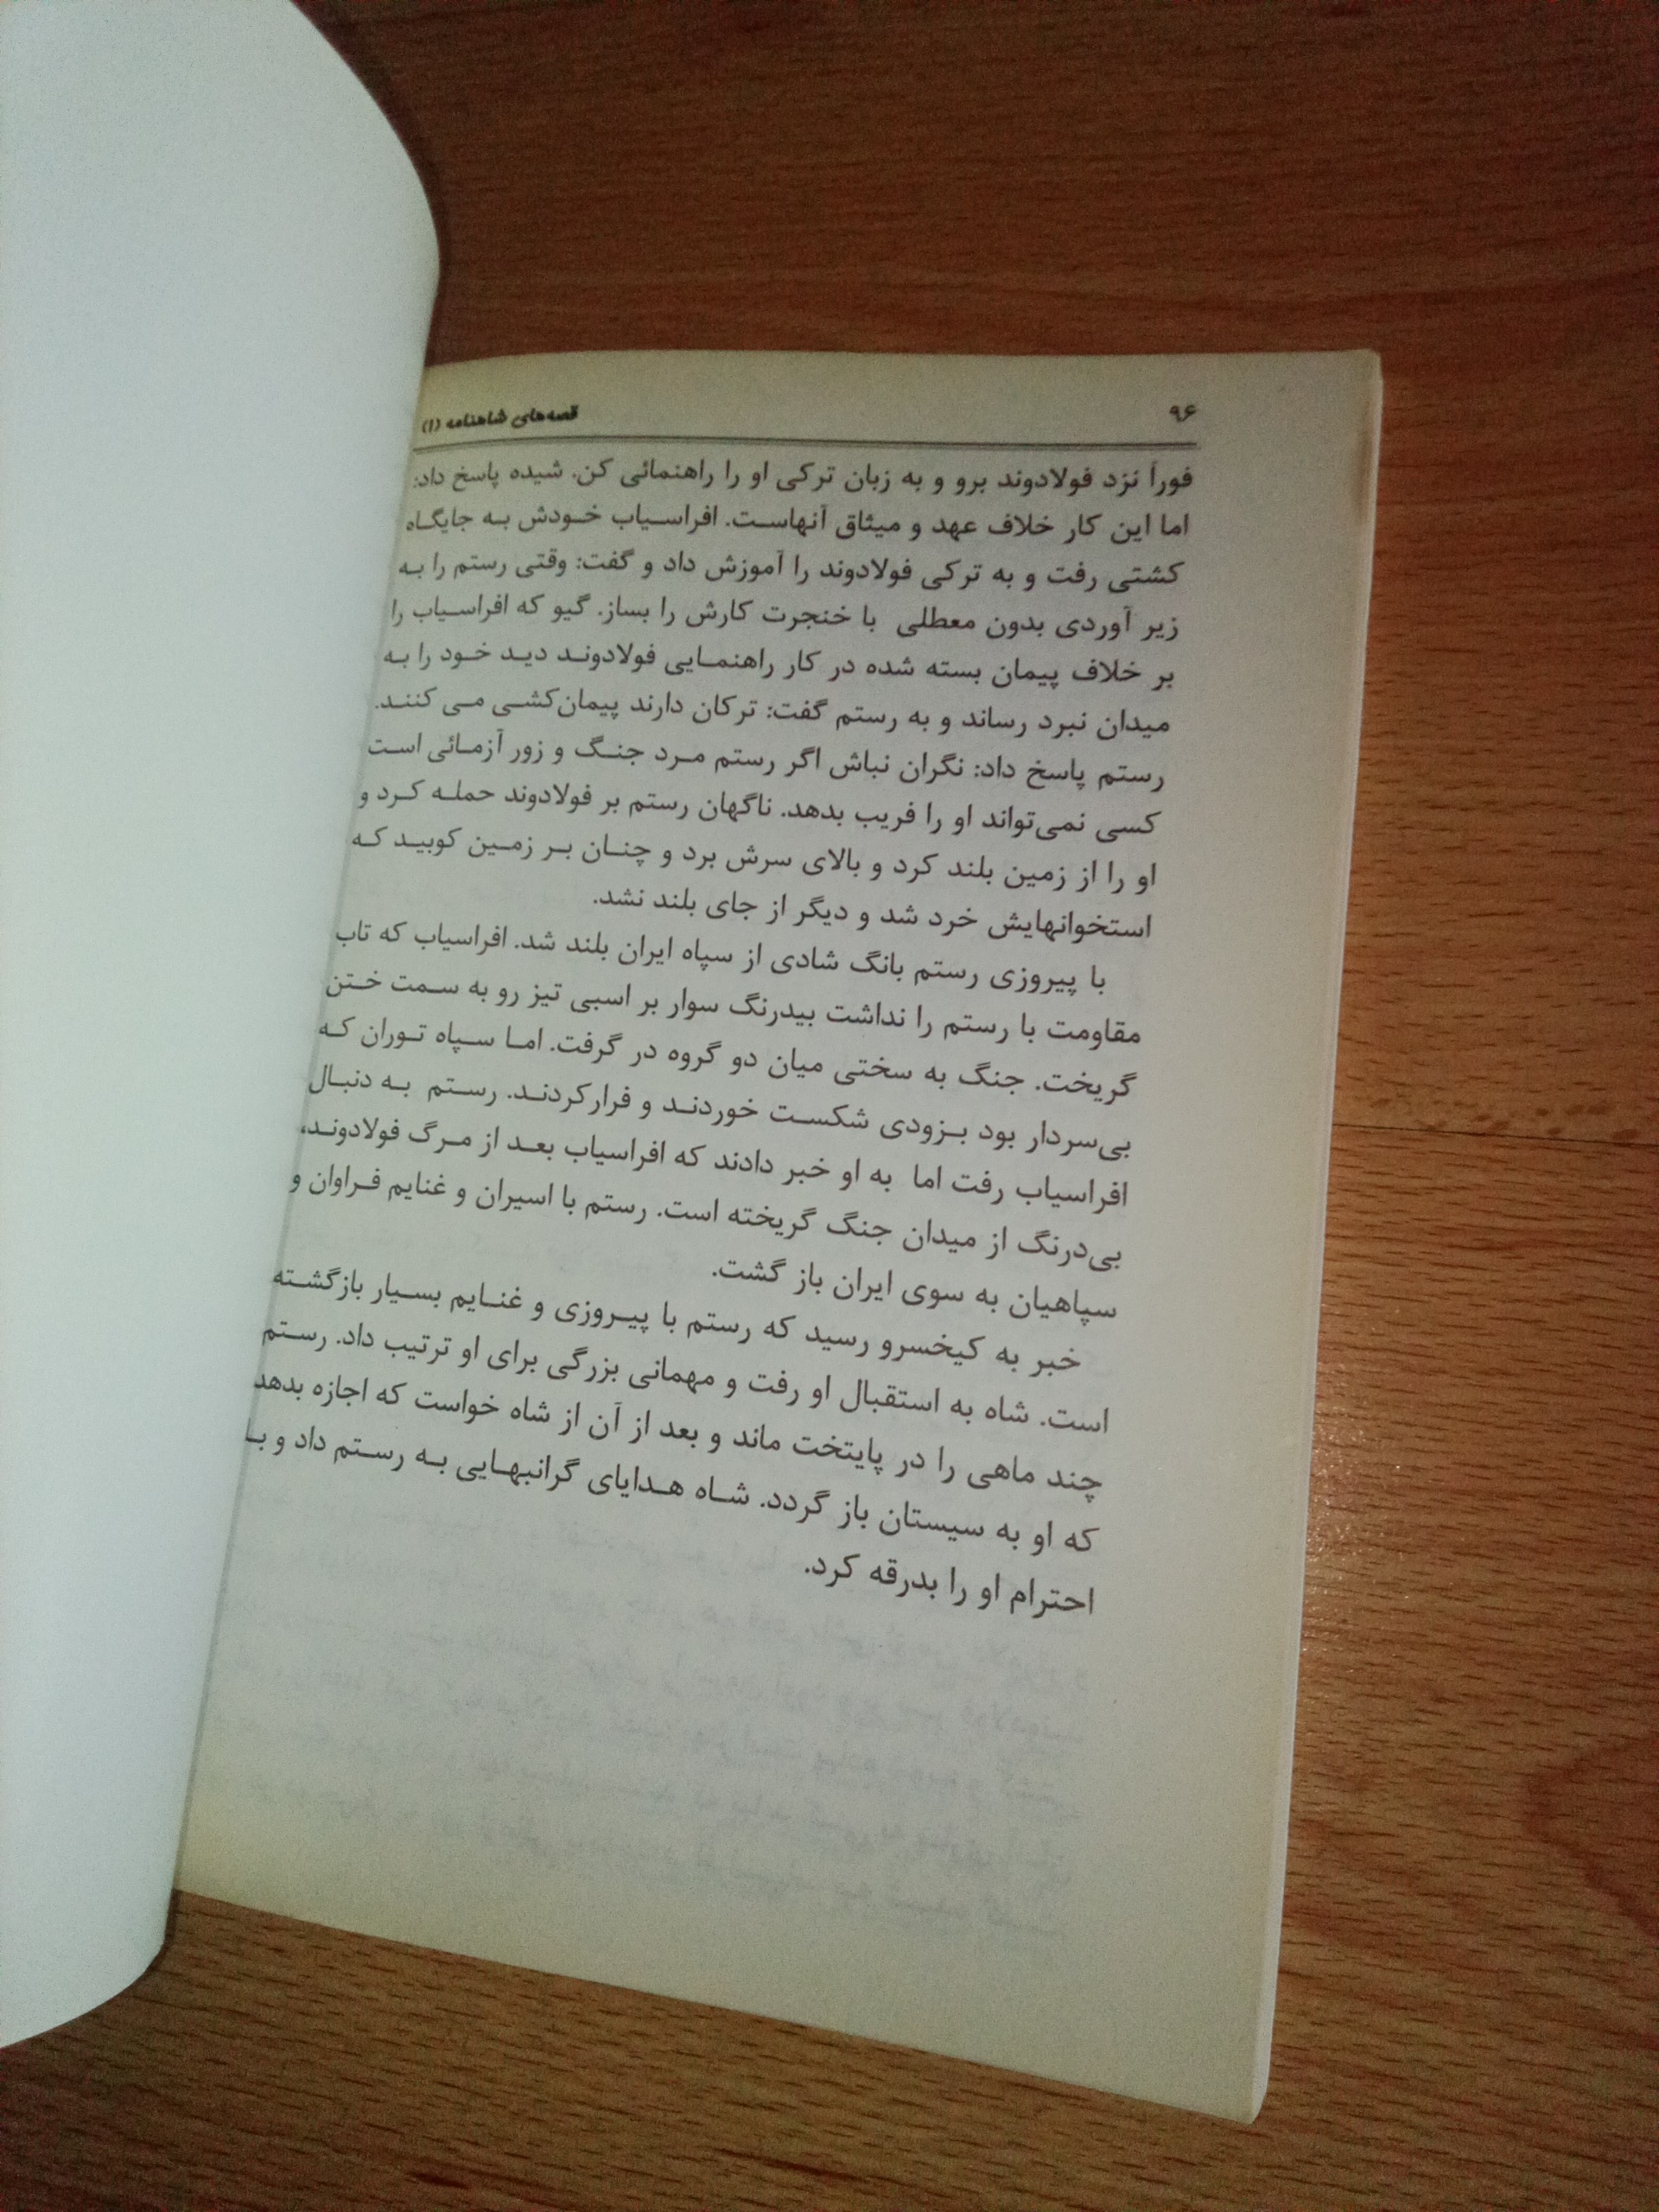 ۹۶
قصه‌های شاهنامه (۱)
فوراً نزد فولادوند برو و به زبان ترکی او را راهنمائی کن. شیده پاسخ داد:
اما این کار خلاف عهد و میثاق آنهاست. افراسیاب خودش به جایگاه
کشتی رفت و به ترکی فولادوند را آموزش داد و گفت: وقتی رستم را به
زیر آوردی بدون معطلی با خنجرت کارش را بساز. گیو که افراسیاب را
بر خلاف پیمان بسته شده در کار راهنمایی فولادوند دید خود را به
میدان نبرد رساند و به رستم گفت: ترکان دارند پیمان‌کشی می کنند.
رستم پاسخ داد: نگران نباش اگر رستم مرد جنگ و زور آزمائی است
کسی نمی‌تواند او را فریب بدهد. ناگهان رستم بر فولادوند حمله کرد و
او را از زمین بلند کرد و بالای سرش برد و چنان بر زمین کوبید که
استخوانهایش خرد شد و دیگر از جای بلند نشد.
با پیروزی رستم بانگ شادی از سپاه ایران بلند شد. افراسیاب که تاب
مقاومت با رستم را نداشت بیدرنگ سوار بر اسبی تیز رو به سمت ختن
گریخت. جنگ به سختی میان دو گروه در گرفت. اما سپاه توران که
بی‌سردار بود بزودی شکست خوردند و فرارکردند. رستم به دنبال
افراسیاب رفت اما به او خبر دادند که افراسیاب بعد از مرگ فولادوند،
بی‌درنگ از میدان جنگ گریخته است. رستم با اسیران و غنایم فراوان و
سپاهیان به سوی ایران باز گشت.
خبر به کیخسرو رسید که رستم با پیروزی و غنایم بسیار بازگشته
است. شاه به استقبال او رفت و مهمانی بزرگی برای او ترتیب داد. رستم
چند ماهی را در پایتخت ماند و بعد از آن از شاه خواست که اجازه بدهد
که او به سیستان باز گردد. شاه هدایای گرانبهایی به رستم داد و با
احترام او را بدرقه کرد.